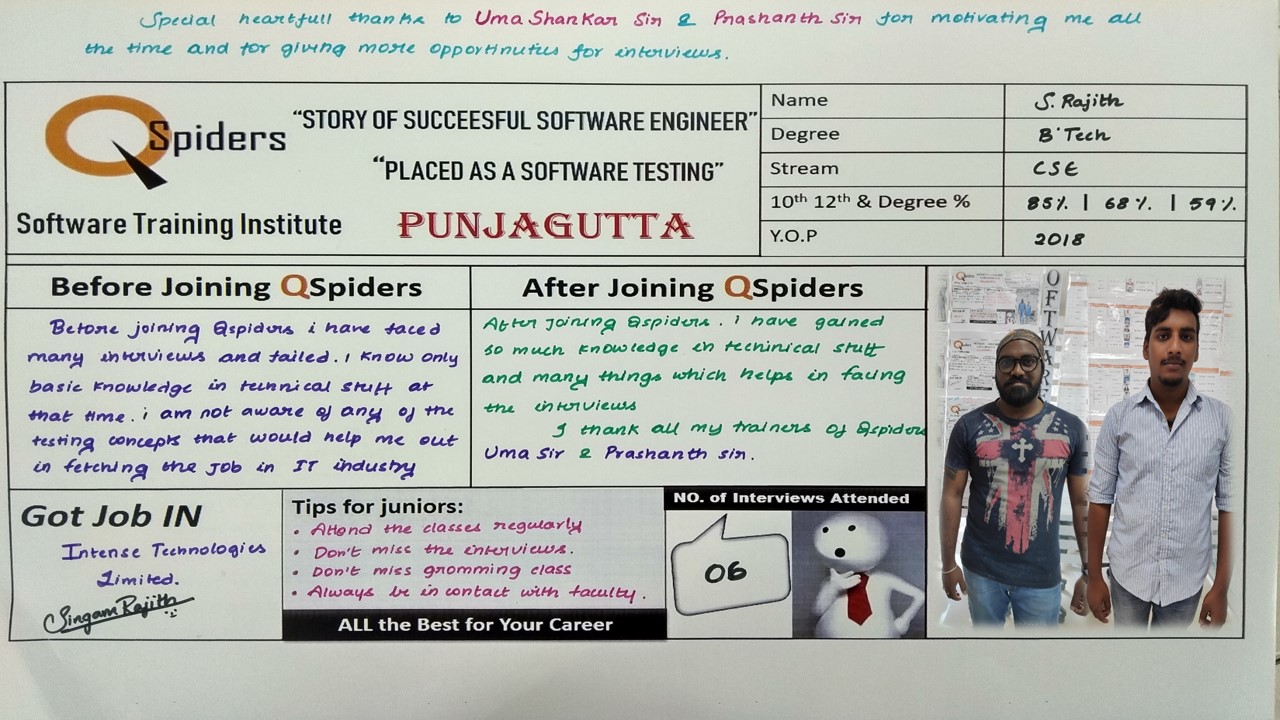 Special heartfull thanks to Uma Shankar Sir & Prashanth Sir for motivating me all
the time and for giving more opportinuties for interviews.
QSpiders
Software Training Institute
“STORY OF SUCCEESFUL SOFTWARE ENGINEER”
“PLACED AS A SOFTWARE TESTING”
PUNJAGUTTA
Name S. Rajith
Degree B'Tech
Stream CSE
10th 12th & Degree % 85% | 68% | 59%
Y.O.P 2018
Before Joining QSpiders
Before joining Qspiders i have faced
many interviews and failed. I know only
basic knowledge in technical stuff at
that time. i am not aware of any of the
testing concepts that would help me out
in fetching the job in IT industry
After Joining QSpiders
After joining Qspiders. i have gained
so much knowledge in techinical stuff
and many things which helps in facing
the interviews
I thank all my trainers of Qspiders
Uma Sir & Prashanth sir.
Got Job IN
Intense Technologies
Limited.
Singam Rajith
Tips for juniors:
• Attend the classes regularly
• Don't miss the interviews.
• Don't miss gromming class
• Always be in contact with faculty.
ALL the Best for Your Career
NO. of Interviews Attended
06
O
F
T
W
A
R